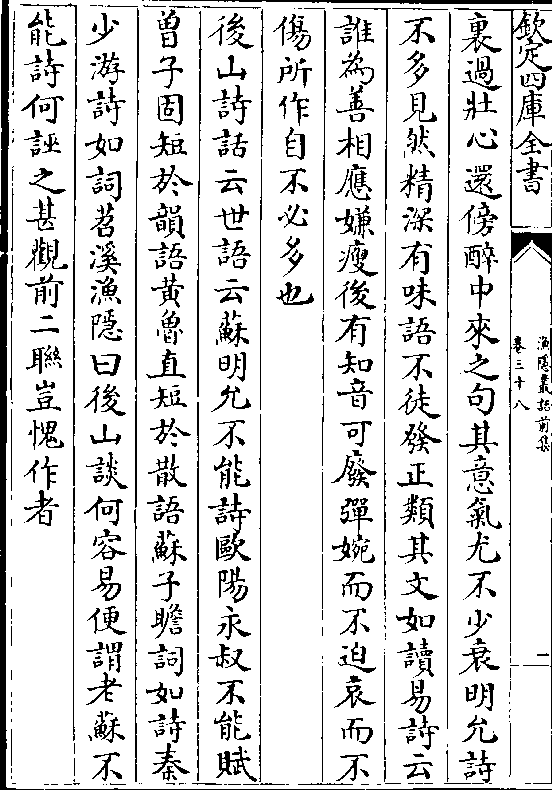 欽定四庫全書
漁隱叢話前集
卷三十八
一
裏過壯心還傍醉中來之句其意氣尤不少衰明允詩
不多見然精深有味語不徒發正類其文如讀易詩云
誰為善相應嫌瘦後有知音可廢彈婉而不迫哀而不
傷所作自不必多也
後山詩話云世語云蘇明允不能詩歐陽永叔不能賦
曾子固短於韻語黃魯直短於散語蘇子瞻詞如詩秦
少游詩如詞苕溪漁隱曰後山談何容易便謂老蘇不
能詩何誣之甚觀前二聯豈愧作者